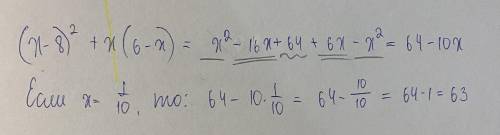 (x-8)² + x(6-x) = x² - 16x + 64 + 6x - x² = 64 - 10x
Если x = 1/10, то: 64 - 10·1/10 = 64 - 10/10 = 64-1 = 63